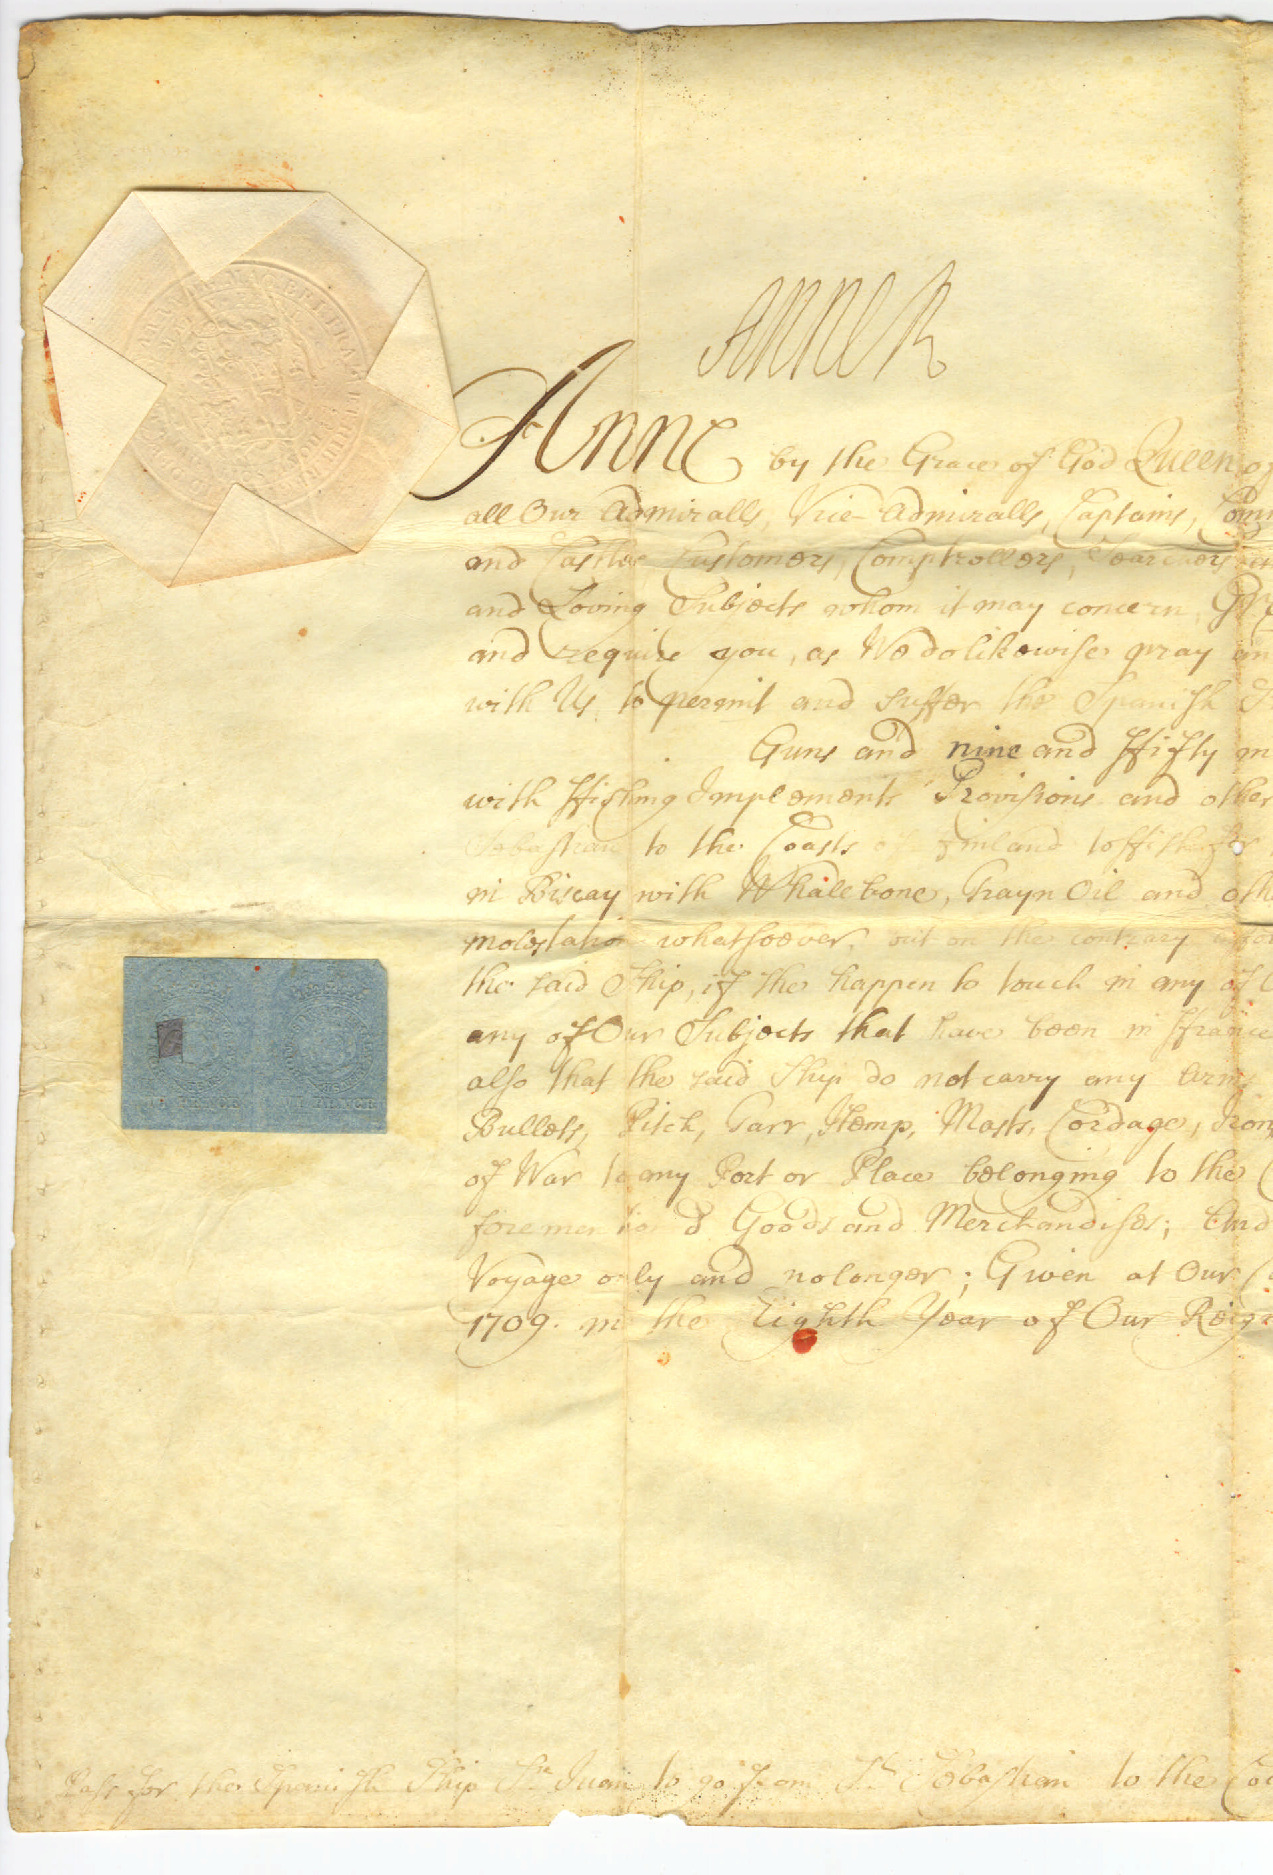 Anne R
Anne by the Grace of God Queen of
all Our Admiralls, Vice-Admiralls, Captains, Com
and Castles, Customers, Comptrollers, Searchers
and Loving Subjects whom it may concern,
and require you, as We do likewise pray an
with Us, to permit and suffer the Spanish
Guns and nine and ffifty m
with ffishing Implements Provisions and other
Sebastian to the Coasts of finland to ffish for
in Biscay with Whalebone, Trayn Oil and oth
molestation whatsoever, but on the contrary
the said Ship, if she happen to touch in any of
any of Our Subjects that have been in ffrance
also that the said Ship do not carry any Arms
Bullets, Pitch, Tarr, Hemp, Masts, Cordage, Iron
of War to any Port or Place belonging to the
foremention'd Goods and Merchandises; And
Voyage only and no longer; Given at Our
1709. in the Eighth Year of Our Reign
VI PENCE VI PENCE
Pass for the Spanish Ship Sn. Juan to go from St. Sebastian to the Co